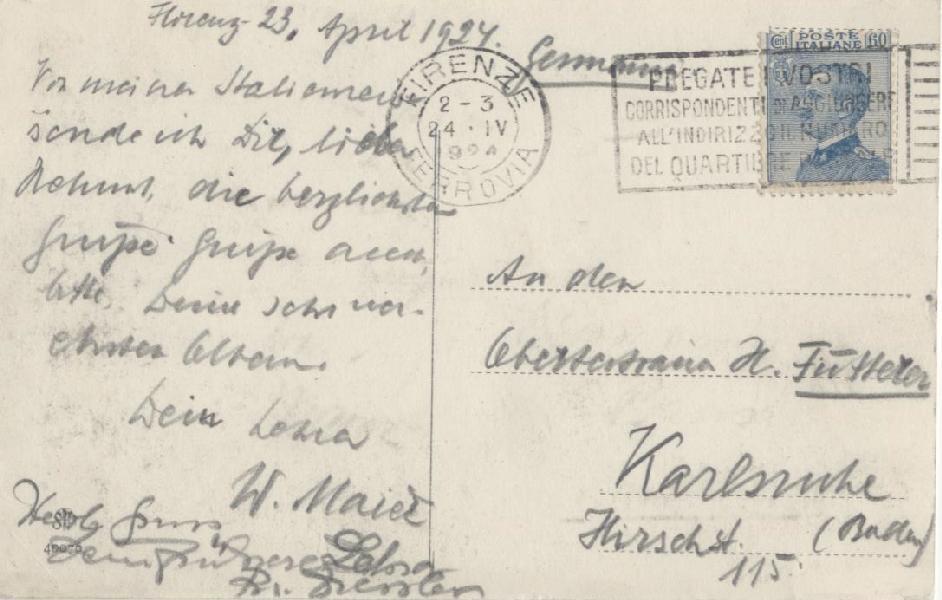 Florenz 23. April 1924.
Von meiner Italienreise
sende ich Dir, lieber
Helmut, die herzlichsten
Grüße. Grüße auch,
bitte, Deine sehr ver-
ehrten Eltern.
Dein Lehrer
W. Maier
Herzl. Gruß
Dein früherer Lehrer
49079
Germania
FIRENZE
2-3
24·IV
1924
FERROVIA
PREGATE I VOSTRI
CORRISPONDENTI DI AGGIUNGERE
ALL'INDIRIZZO IL NUMERO
DEL QUARTIERE
Cent POSTE 60
ITALIANE
An den
Obertertianer H. Fütterer
Karlsruhe
Hirschst. (Baden)
115